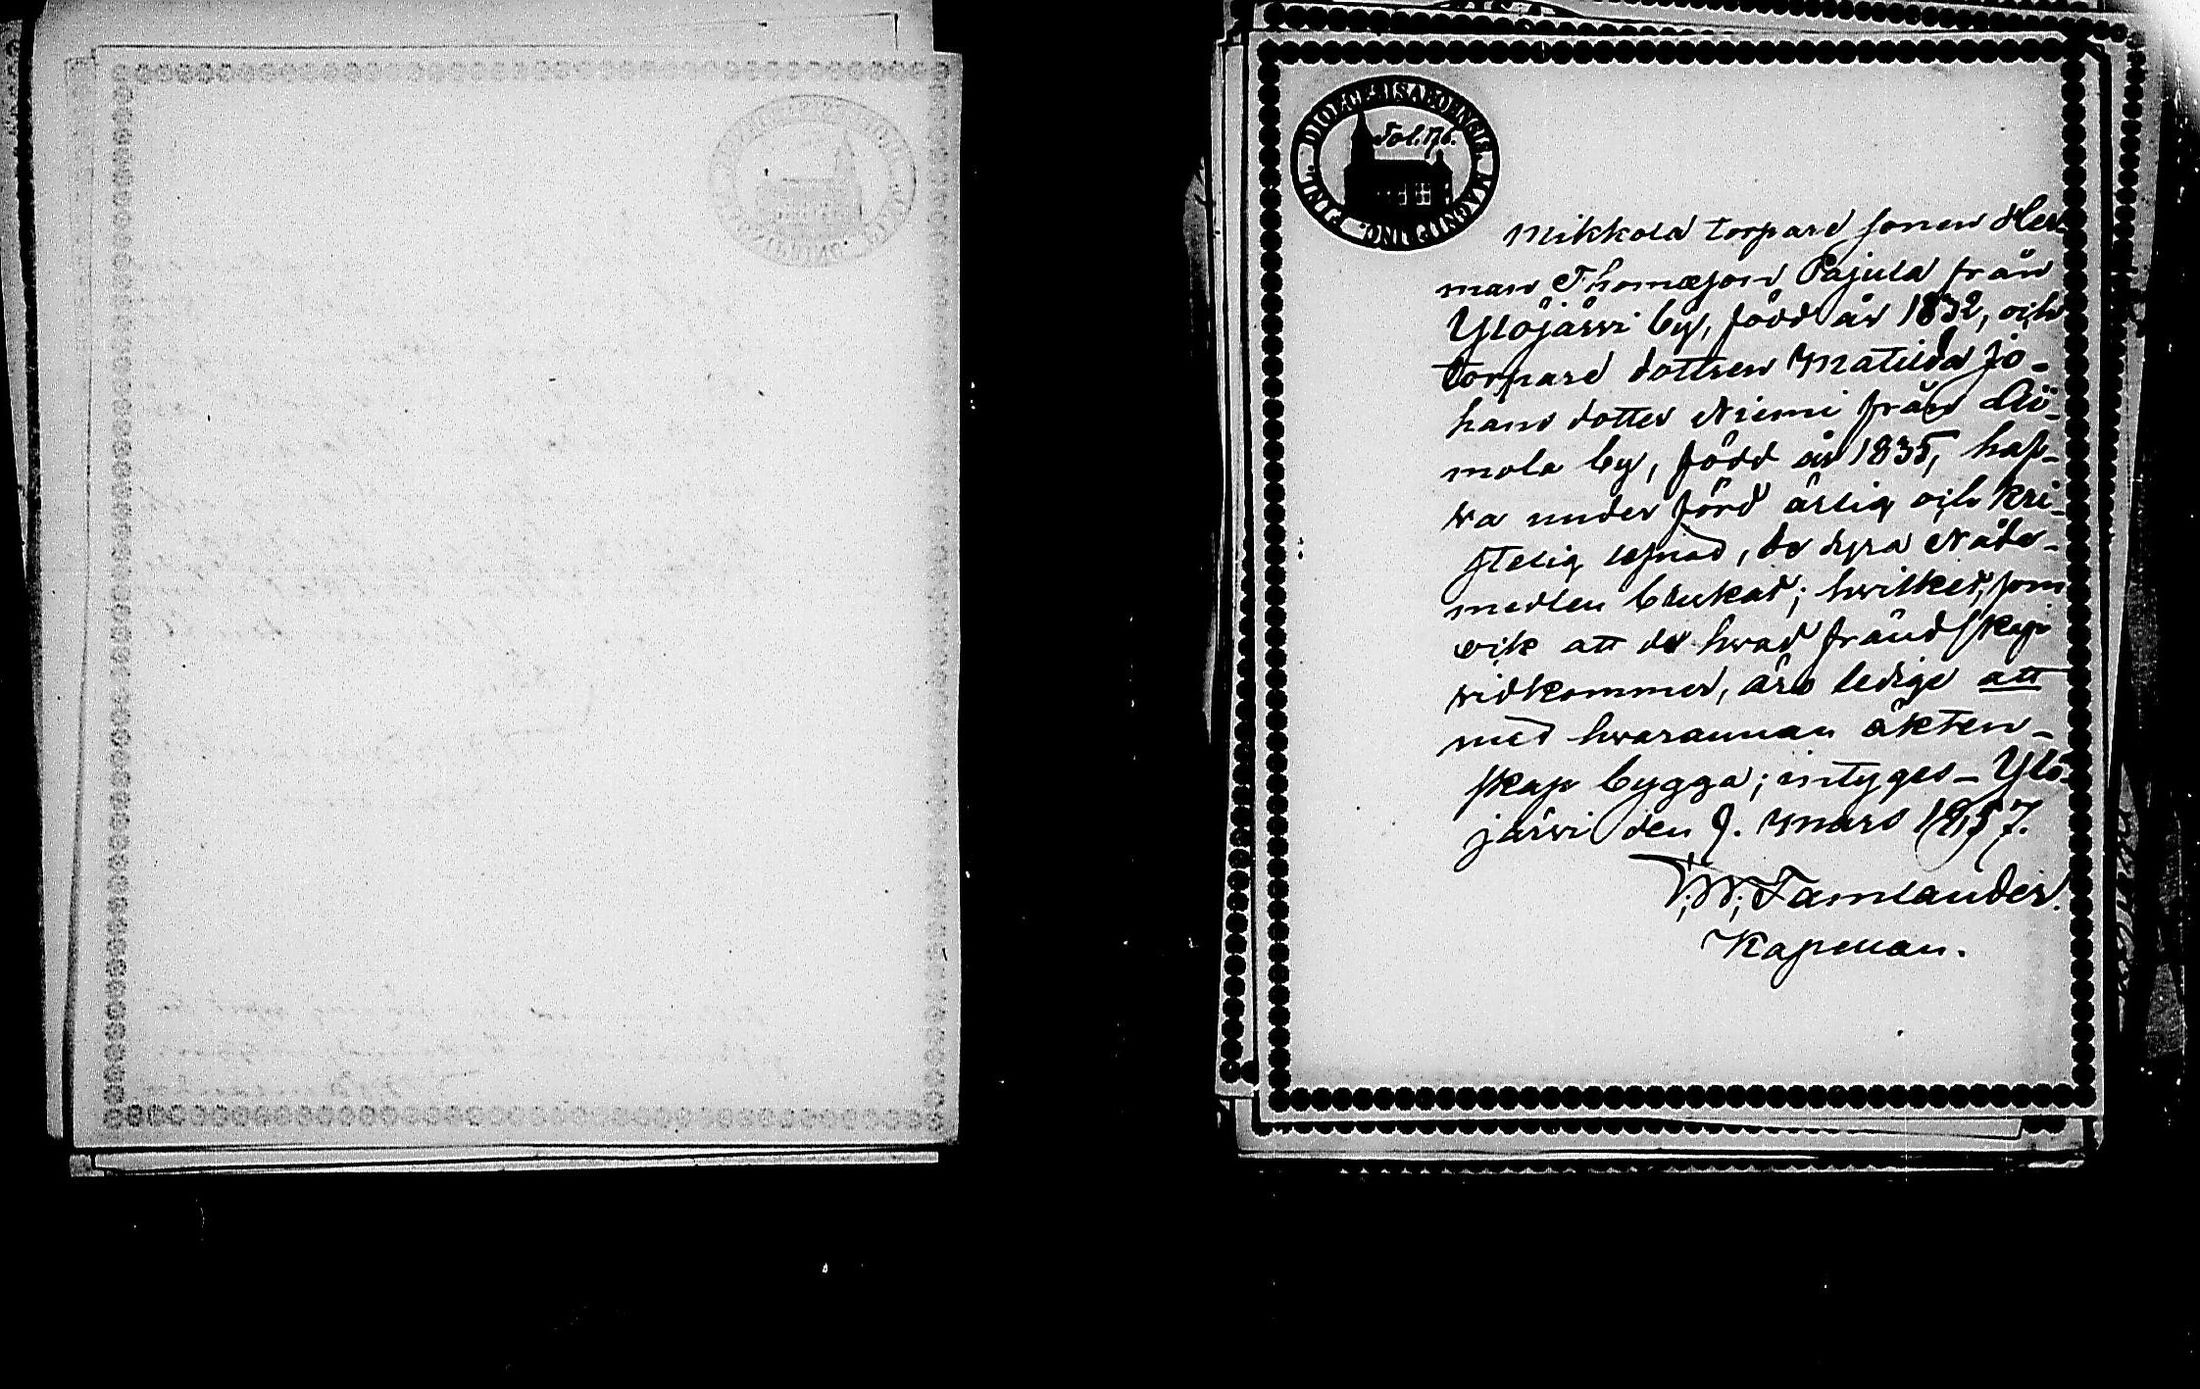 DIOECESIS ABOENSIS. MAGNI PRINC. FINL.
Fol. 176.
Mikkola torpare sonen Her-
man Thomæson Pajula från
Ylöjärwi by, född år 1832, och
torpare dottren Matilda Jo-
hans dotter Niemi från
mola by, född år 1835, haf-
wa under förd ärlig och kri-
stelig lefnad, de dyra Nåde-
medlen brukat; hwilket, som
ock att de hwad frändskap
widkommer, äro ledige att
med hwarannan äkten-
skap bygga; intyges – Ylö-
järwi den 9. Mars 1857.
Tamlander.
Kapellan.